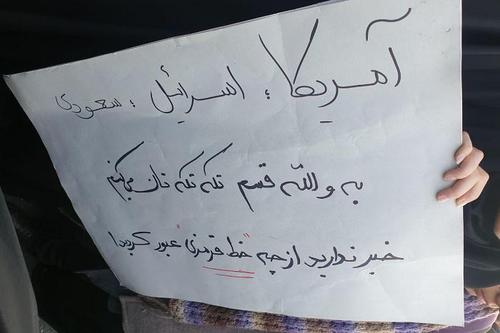 آمریکا ، اسرائیل ، سعودی
به والله قسم تکه تکه تان میکنم
خبر ندارید از چه "خط قرمزی" عبور کردید!